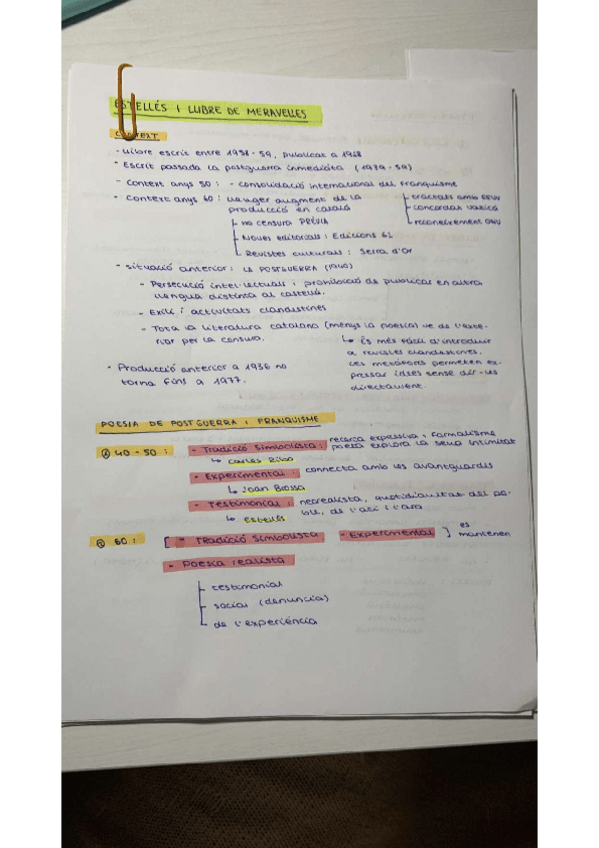 ESTELLÉS I LLIBRE DE MERAVELLES
CONTEXT
- Llibre escrit entre 1958-59, publicat a 1968
- Escrit passada la postguerra inmediàta (1939-59)
- Context anys 50: - consolidació internacional del Franquisme
tractats amb EEUU
concordat Vaticà
reconeixement ONU
- Context anys 60: lleuger augment de la
producció en català
no censura PRÈVIA
Noves editorials: Edicions 62
Revistes culturals: Serra d'Or
- Situació anterior: LA POSTGUERRA (1940)
- Persecució intel·lectuals i prohibició de publicar en altra
llengua distinta al castellà.
- Exili i activitats clandestines
- Tota la literatura catalana (menys la poesia) ve de l'exte-
rior per la censura.
↳ És més fàcil d'introduir
a revistes clandestines.
Les metàfores permeten ex-
pressar idees sense dir-les
directament.
- Producció anterior a 1936 no
torna fins a 1977.
POESIA DE POSTGUERRA I FRANQUISME
40-50:
- Tradició Simbolista: recerca expressiva i formalisme
poesia explora la seua intimitat
↳ Carles Riba
- Experimental: connecta amb les avantguardes
↳ Joan Brossa
- Testimonial: neorealista, quotidianitat del po-
ble, de l'ací i l'ara
↳ Estellés
60:
[ - Tradició Simbolista - Experimental ] es
mantenen
- Poesia realista
testimonial
social (denuncia)
de l'experiència